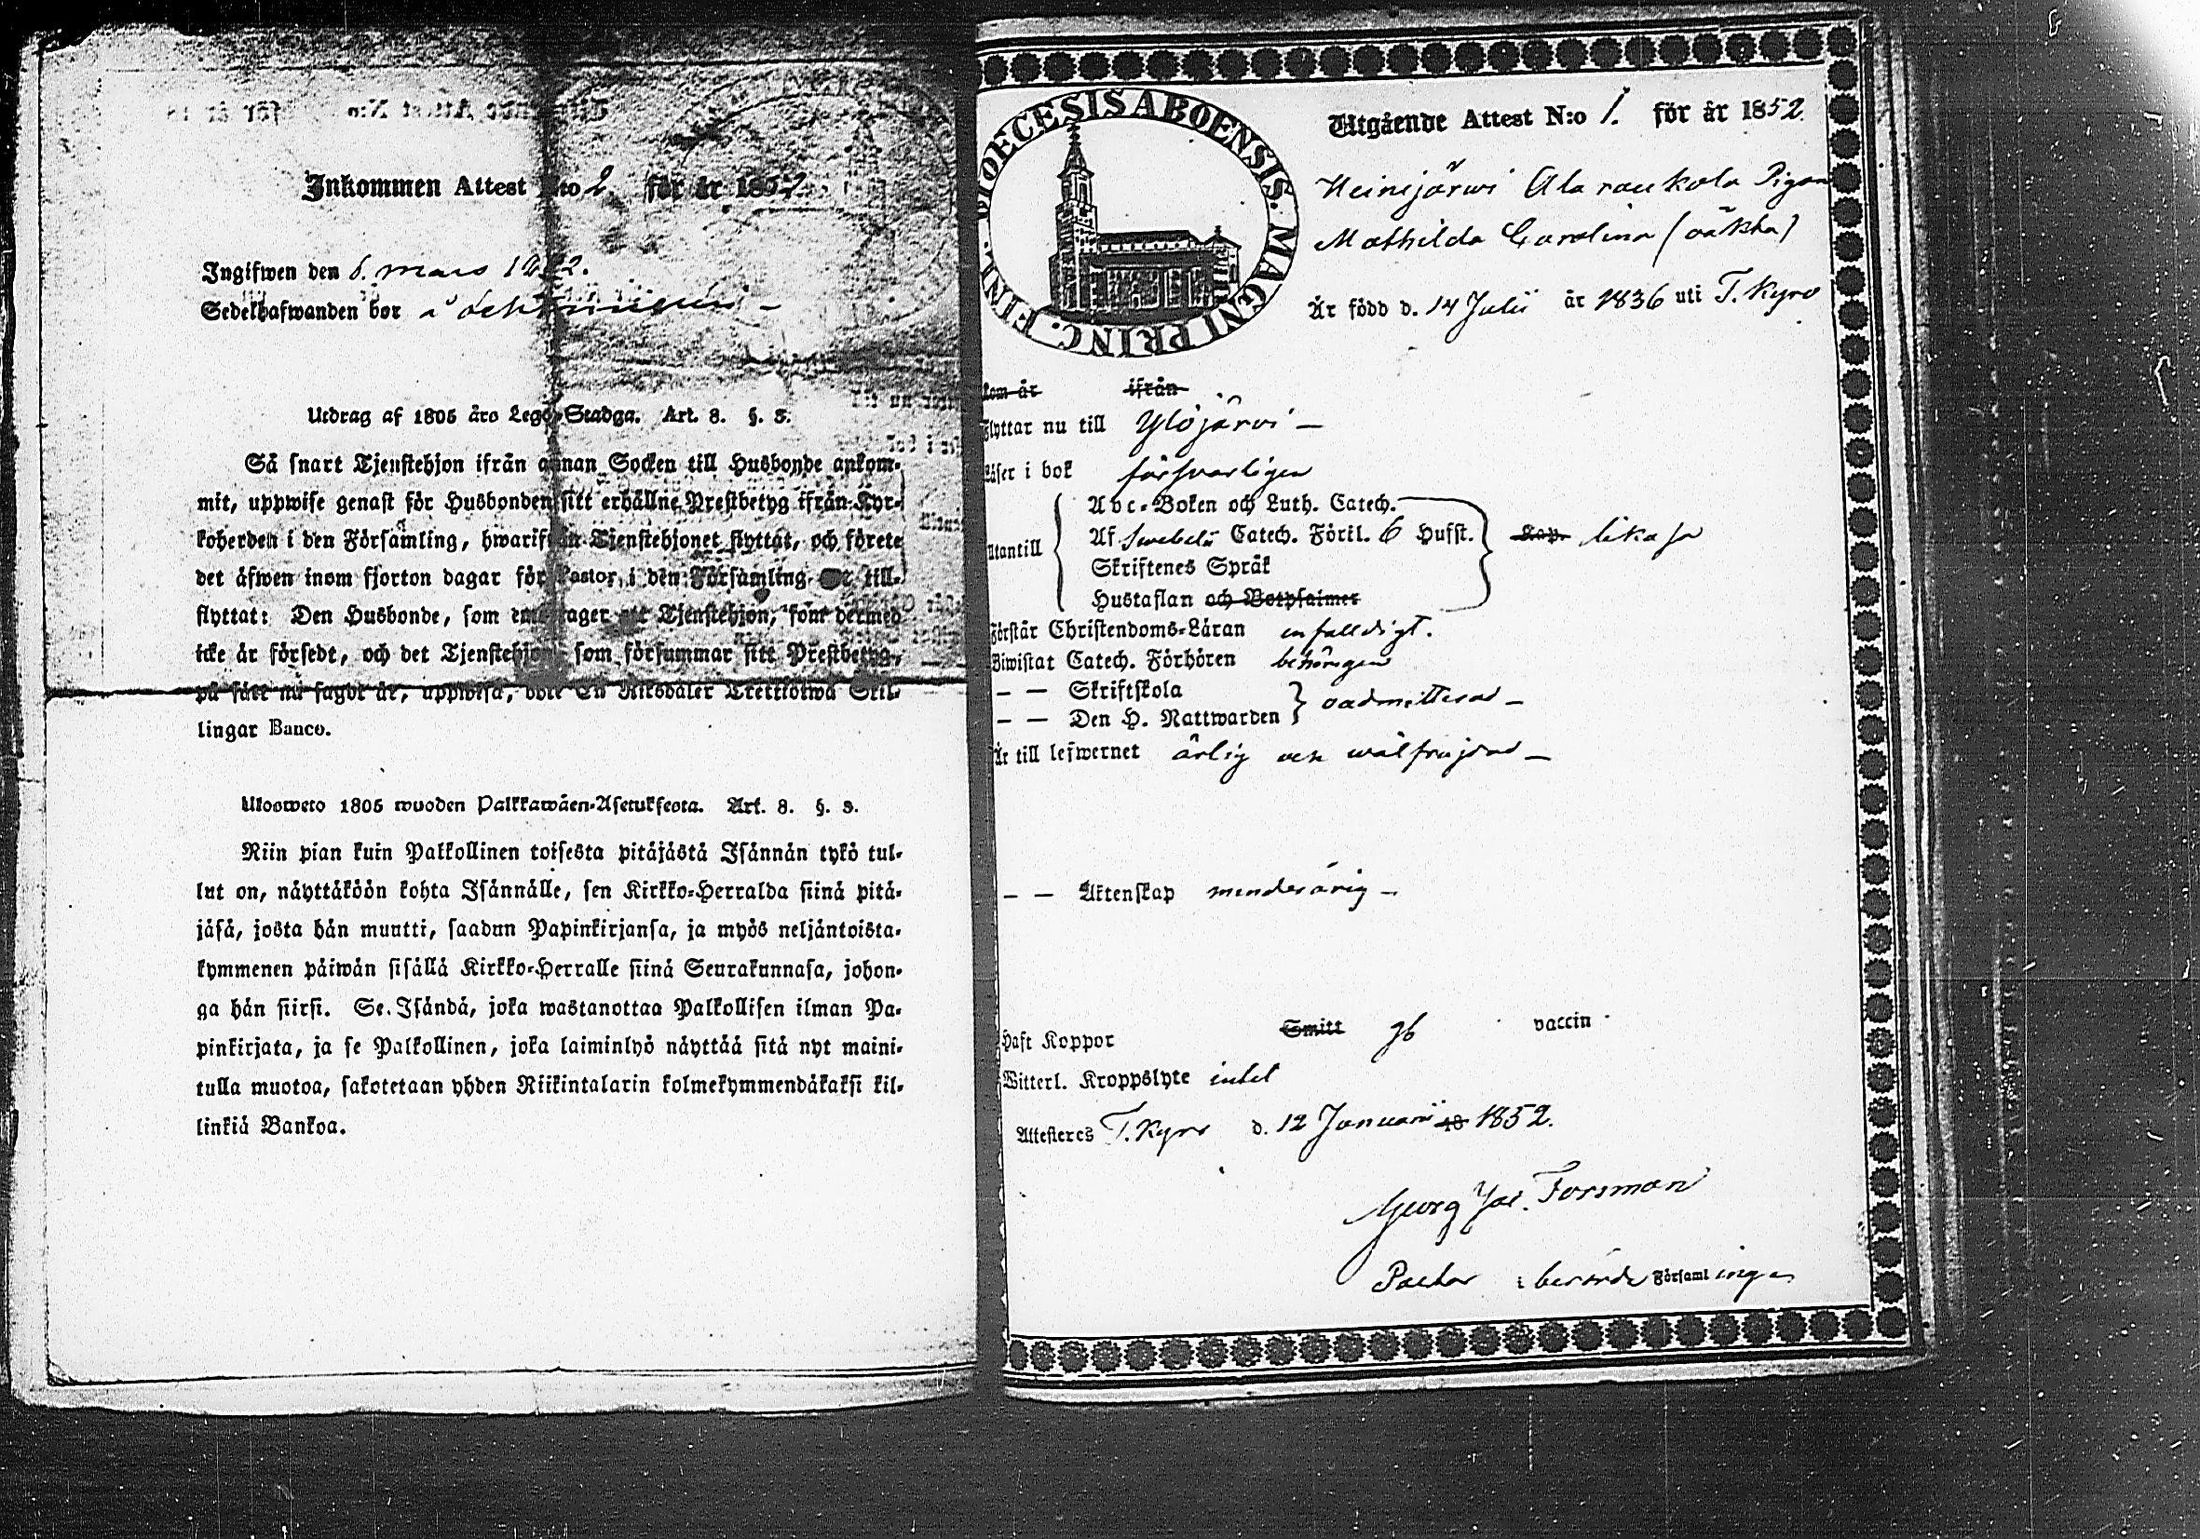 Inkommen Attest N:o 2 för år 1852
Ingifwen den 6. mars 1852.
Sedelhafwanden bor
Utdrag af 1805 års Lego-Stadga. Art. 8. §. 3.
Så snart Tjenstehjon ifrån annan Socken till Husbonde ankom-
mit, uppwise genast för Husbonden sitt erhållne Prestbetyg ifrån Kyr-
koherden i den Församling, hwarifrån Tjenstehjonet flyttat, och förete
det äfwen inom fjorton dagar för Pastor, i den Församling till-
flyttat: Den Husbonde, som emottager ett Tjenstehjon, som dermed
icke är försedt, och det Tjenstehjon, som försummar sitt Prestbetyg,
på sätt nu sagdt är, uppwisa, böte En Riksdaler Trettiotwå Skil-
lingar Banco.
Ulosweto 1805 wuoden Palkkawäen-Asetuksesta. Art. 8. §. 3.
Niin pian kuin Palkollinen toisesta pitäjästä Isännän tykö tul-
lut on, näyttäköön kohta Isännälle, sen Kirkko-Herralda siinä pitä-
jäsä, josta hän muutti, saadun Papinkirjansa, ja myös neljäntoista-
kymmenen päiwän sisällä Kirkko-Herralle siinä Seurakunnasa, johon-
ga hän siirsi. Se Isändä, joka wastanottaa Palkollisen ilman Pa-
pinkirjata, ja se Palkollinen, joka laiminlyö näyttää sitä nyt maini-
tulla muotoa, sakotetaan yhden Riikintalarin kolmekymmendäkaksi kil-
linkiä Bankoa.
DIOECESIS ABOENSIS. MAGNI PRINC. FINL.
Utgående Attest N:o 1. för år 1852.
Heinijärwi Alaraukola Pigan
Mathilda Carolina (oäkta)
Är född d. 14 Julii år 1836 uti T. Kyro
kom år ifrån
Flyttar nu till Ylöjärvi —
Läser i bok försvarligen
Utantill
Abc-Boken och Luth. Catech.
Af Swebelii Catech. Föril. 6 Hufst. Kap. lika så
Skriftenes Språk
Hustaflan och Botpsalmer
Förstår Christendoms-Läran enfaldigt.
Biwistat Catech. Förhören behörigen
— — Skriftskola
— — Den H. Nattwarden oadmitterad —
Är till lefwernet ärlig och wälfrejdad —
— — Äktenskap minderårig —
Haft Koppor Smitt gb vaccin
Witterl. Kroppslyte intet
Attesteres T. Kyro d. 12 Januarii 18 1852.
Georg Jac. Forsman
Pastor i berörde Församlingen